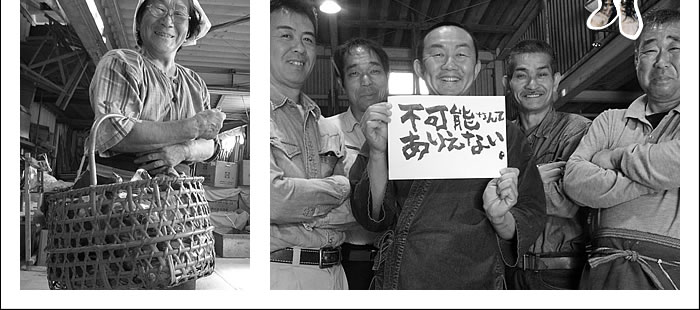 不可能なんて
ありえない。